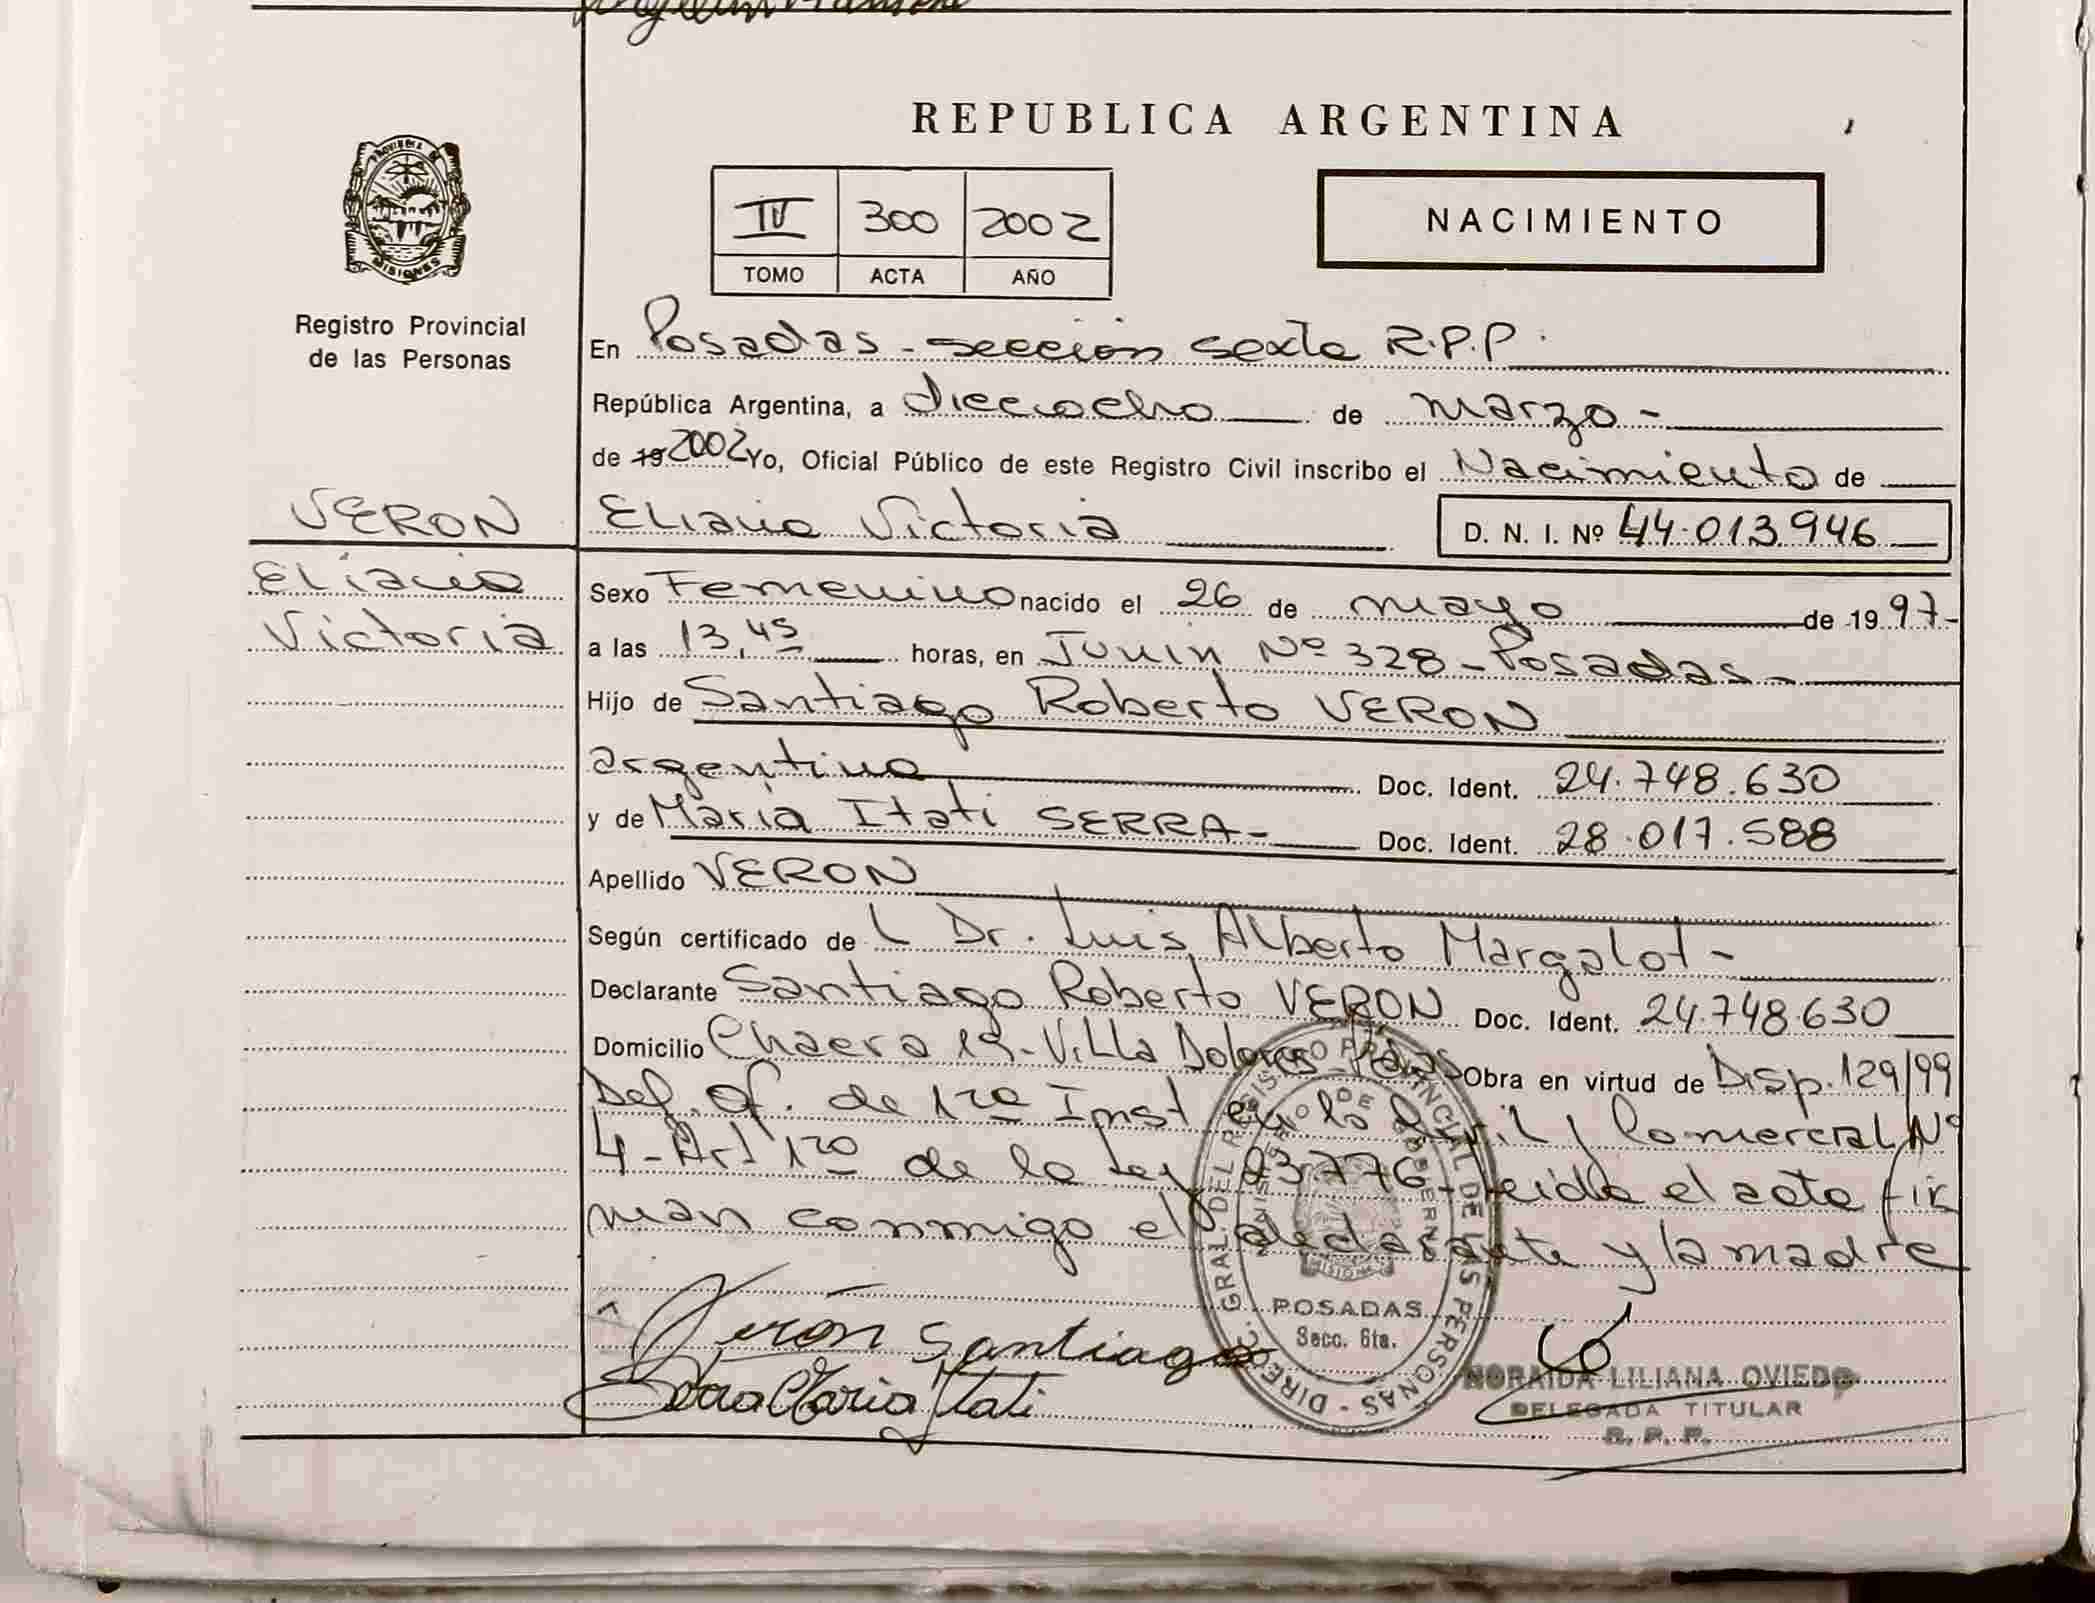 REPUBLICA ARGENTINA
PROVINCIA DE
MISIONES
Registro Provincial
de las Personas
IV 300 2002
TOMO ACTA AÑO
NACIMIENTO
En Posadas - sección sexta R.P.P.
República Argentina, a dieciocho de marzo -
de 19 2002 Yo, Oficial Público de este Registro Civil inscribo el Nacimiento de
VERON Eliana Victoria D. N. I. Nº 44.013.946
Eliana
Victoria
Sexo Femenino nacido el 26 de mayo de 1997-
a las 13,45 horas, en Junin Nº 328 - Posadas -
Hijo de Santiago Roberto VERON
argentino Doc. Ident. 24.748.630
y de María Itati SERRA - Doc. Ident. 28.017.588
Apellido VERON
Según certificado de L Dr. Luis Alberto Margalot -
Declarante Santiago Roberto VERON Doc. Ident. 24.748.630
Domicilio Chacra 19 - Villa Dolores - Pdas Obra en virtud de Disp. 129/99
Def. Of. de 1ra Inst en lo Civil y Comercial Nº
4 - Art 1ro de la Ley 23.776 - Leida el acta fir
man conmigo el declarante y la madre
DIREC. GRAL. DEL REGISTRO PROVINCIAL DE LAS PERSONAS -
MINISTERIO DE GOBIERNO
MISIONES
POSADAS
Secc. 6ta.
Verón Santiago
Serra Maria Itati
NORAIDA LILIANA OVIEDO
DELEGADA TITULAR
R. P. P.